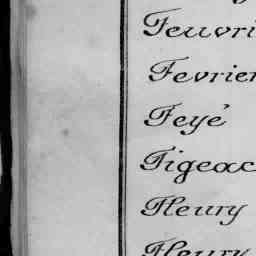 Feuvri
Fevrier
Feyé
Figeac
Fleury
Fleury